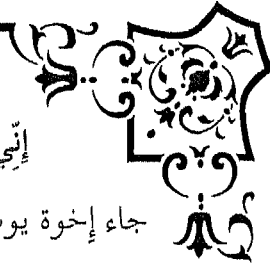 إِنِّي
جاء إِخوة يو